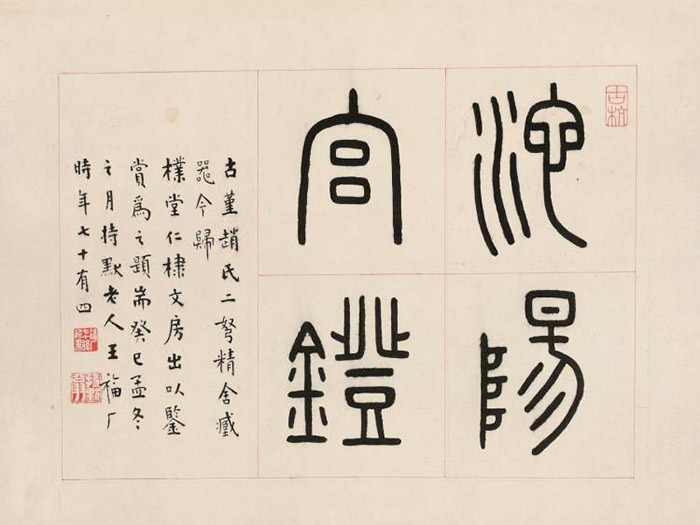 古杭
池陽
宮鐙
古堇趙氏二弩精舍藏
器今歸
樸堂仁棣文房出以鑒
賞爲之題耑癸巳孟冬
之月持默老人王福厂
時年七十有四